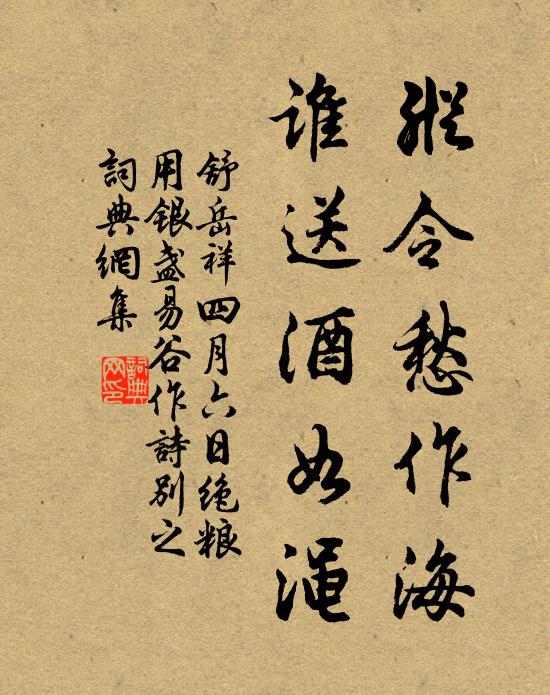 縱令愁作海
誰送酒如渑
舒岳祥四月六日绝粮
用银盏易谷作詩别之
詞典網集
詞典
网印